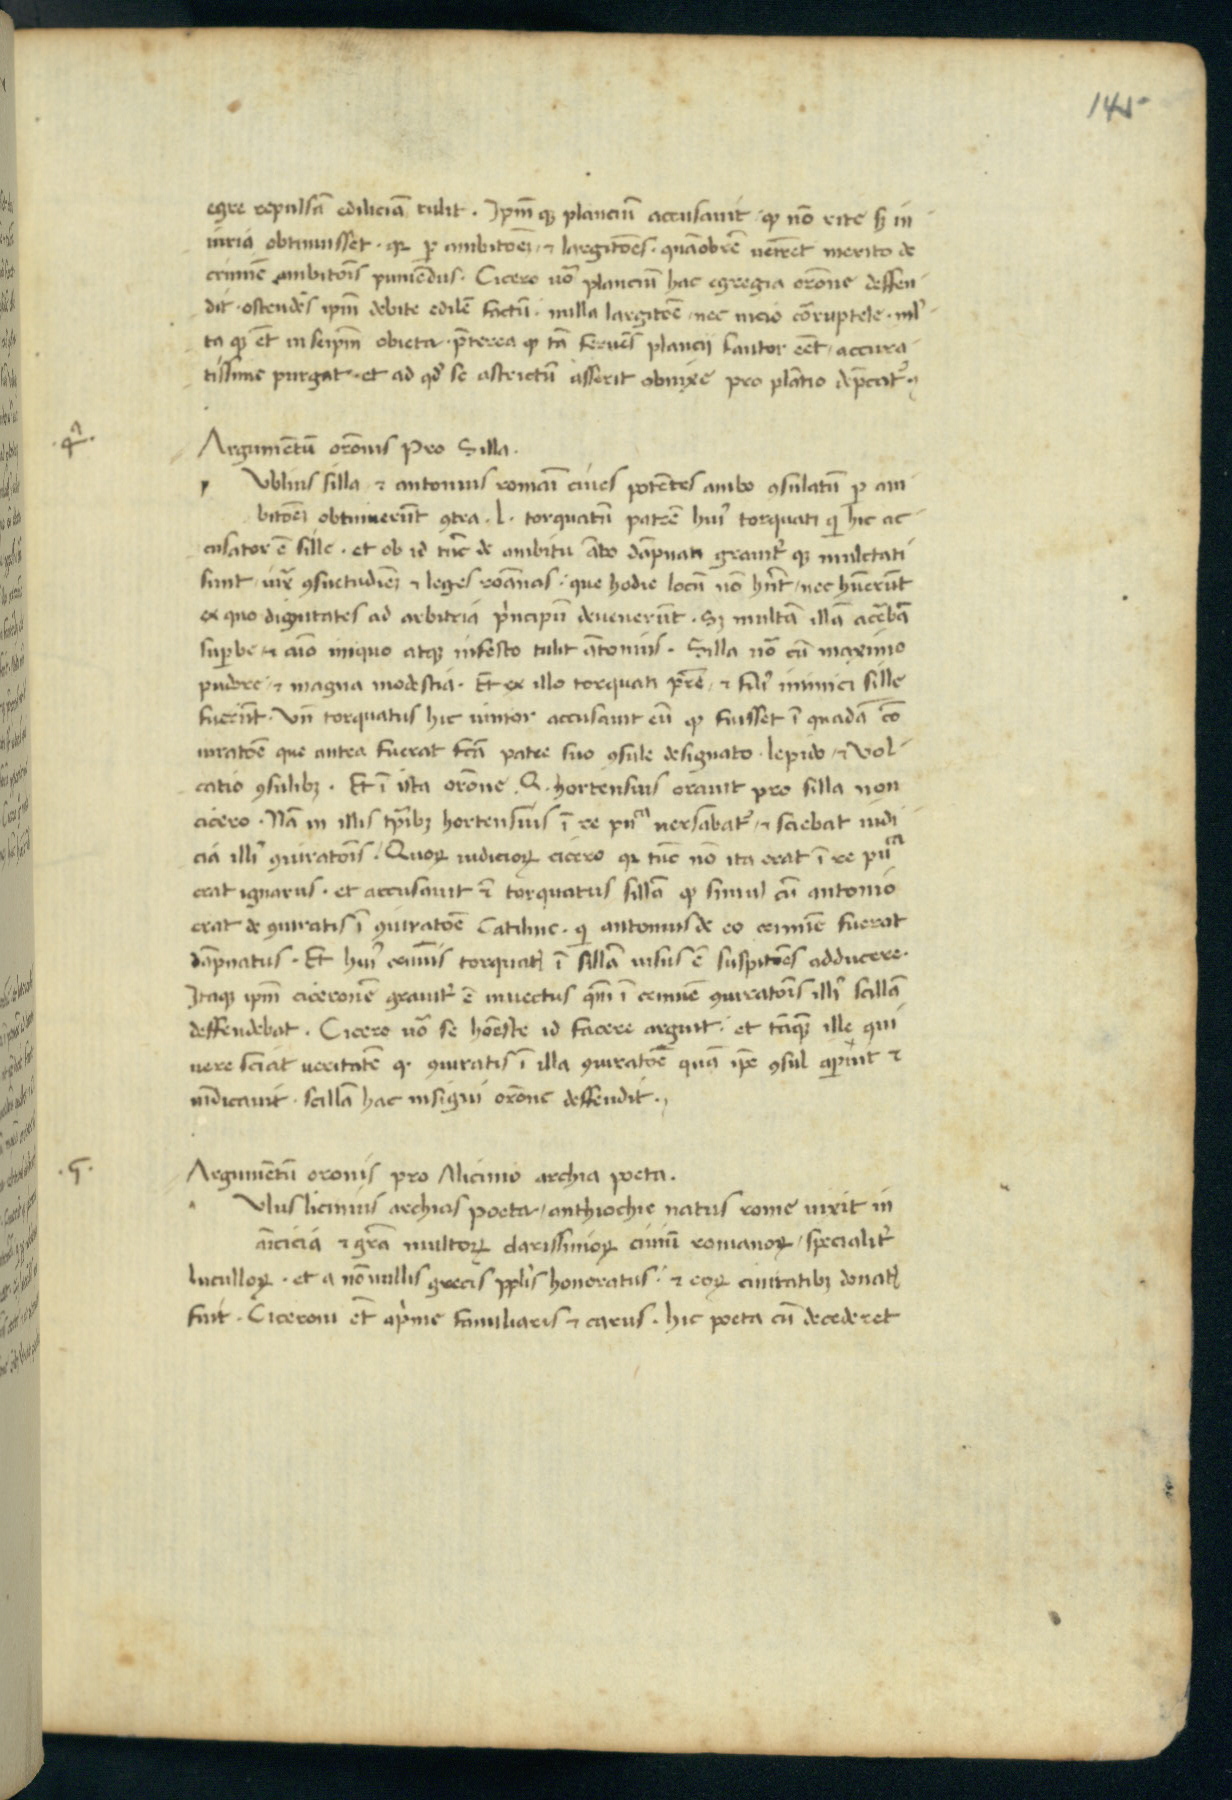 145
egre repulsā ediliciā tulit . Ipm̄ qꝫ planciū accusauit / ꝙ nō rite sꝫ in
iuria obtinuisset . qꝛ ꝑ ambitōeꝫ ⁊ largitōes . quāobrē ueīret merito de
crimīe ambitōis puniēdus . Cicero uō planciū hac egregia orōne deffen
dit . ostendēs ipm̄ debite edilē factū . nulla largitōe / nec uicio cōruptele . ml̓
ta qꝫ et̄ in seipm̄ obiecta . p̄terea ꝙ tā feruēs plancij fautor eēt / accura
tissime purgat . et ad qd̓ se astrictū asserit obnixe pro plātio dep̄cat᷑ .
.4ᵃ.
Argumētū orōnis Pro Silla .
P Vblius silla ⁊ antonius romaī ciues potētes ambo ꝯsulatū ꝑ am
bitōeꝫ obtinuerūt ꝯtra . l . torquatū patrē hui᷒ torquati qi hic ac
cusator ē sille . et ob id tūc de ambitu ābo dāpnati grauit᷑ qꝫ mulctati
sunt / iux̄ ꝯsuetudīeꝫ ⁊ leges roānas . que hodie locū nō hn̄t / nec hūerūt
ex quo dignitates ad arbitriā p̓ncipū deuenerūt . Sꝫ multā illā acēbā
suꝑbe ⁊ aīo iniquo atqꝫ infesto tulit ātonius . Silla uō cū maximo
pudore / ⁊ magna modestia . Et ex illo torquati pr̄e / ⁊ fili᷒ inimici sille
fuerūt . Vn̄ torquatus hic iunior accusauit eū ꝙ fuisset ī quadā cō
iuratōe que antea fuerat fc̄a patre suo ꝯsule designato . lepido / ⁊ Vol
catio ꝯsulibꝫ . Et ī ista orōne . Q . hortensius orauit pro silla non
cicero . Nā in illis tp̄ibꝫ hortensius ī re puᶜᵃ uersabat᷑ / ⁊ sciebat iudi
cia illi᷒ ꝯiuratōis . Quoꝝ iudicioꝝ cicero qꝛ tūc nō ita erat ī re puᶜᵃ
erat ignarus . et accusauit et̄ torquatus sillā ꝙ simul cū antonio
erat de ꝯiuratis ī ꝯiuratōe Catiline . qi antonius de eo crimīe fuerat
dāpnatus . Et hui᷒ crimīs torquat᷒ ī sillā uisus ē suspitōes adducere .
Itaqꝫ ipm̄ ciceronē grauit᷑ ē inuectus qm̄ ī crimīe ꝯiuratōis illi᷒ scillā
deffendebat . Cicero uō se hōeste id facere arguit . et tāqꝫ ille qui
uere sciat ueritatē qꝛ ꝯiuratis ī illa ꝯiuratōe quā ip̄e ꝯsul aꝑuit ⁊
uīdicauit . scillā hac insigni orōne deffendit .
.5.
Argumētū orōnis pro A licinio archia poeta .
A Vlus licinius archias poeta / anthiochie natus rome uixit in
aīcicia ⁊ grā multoꝝ clarissimoꝝ ciuiū romanoꝝ / specialit᷑
luculloꝝ . et a nōnullis grecis pplīs honoratus . ⁊ eoꝝ ciuitatibꝫ donat᷒
fuit . Ciceroni et̄ ap̓me familiaris ⁊ carus . hic poeta cū decederet